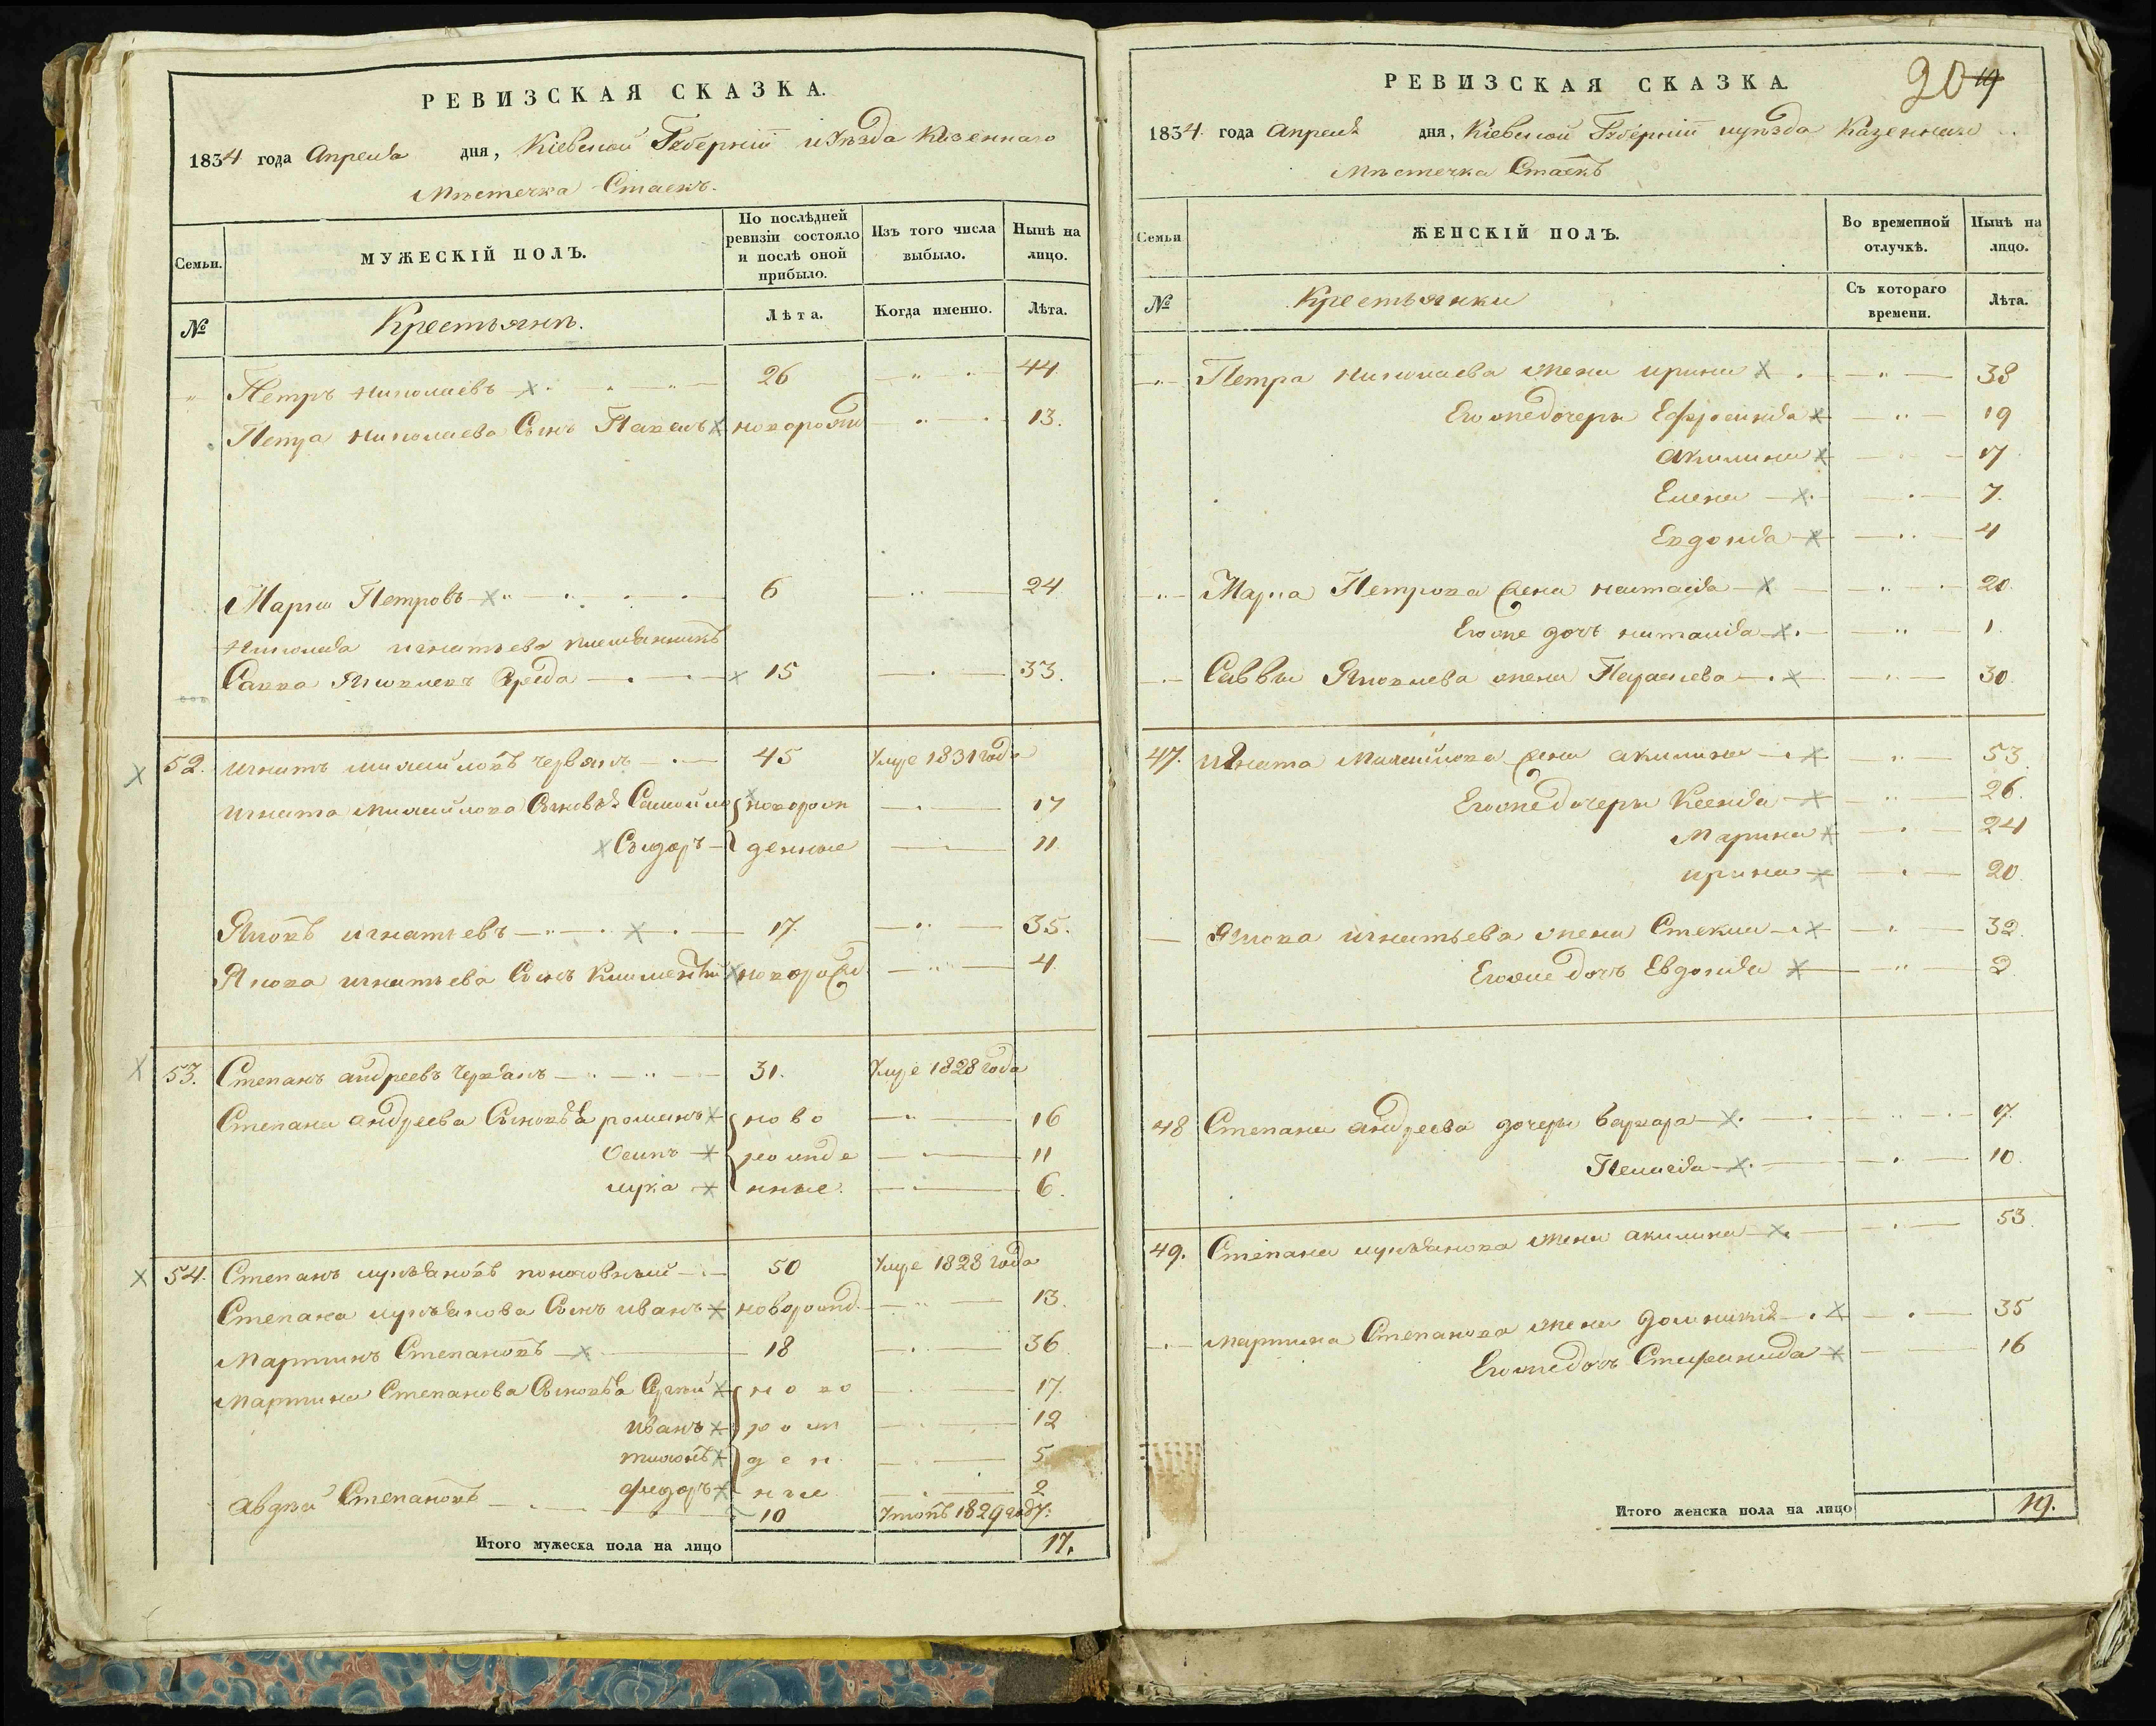 РЕВИЗСКАЯ СКАЗКА.
1834 года Апреля дня, Кіевской Губерніи и уѣзда Казеннаго
Мѣстечка Стаекъ.
Семьи.
МУЖЕСКІЙ ПОЛЪ.
По послѣдней ревизіи состояло и послѣ оной прибыло.
Изъ того числа выбыло.
Нынѣ на лицо.
№
Крестьянъ.
Лѣта.
Когда именно.
Лѣта.
Петръ Николаевъ 26 44
Петра Николаева Сынъ Павелъ новорожд 13.
Марко Петровъ 6 24
Николая игнатьева племянникъ
Савва Яковлевъ 15 33.
52. игнатъ михайловъ червякъ 45 Умре 1831 года
игната михайлова Сыновья Самойло новорож 17
Сидоръ денные 11
Яковъ игнатьевъ 17. 35.
Якова игнатьева Сынъ Климентій новорожд. 4
53. Степанъ андреевъ Червакъ 31. Умре 1828 года
Степана андреева Сыновья романъ ново 16
Осипъ рожде 11
лука нные. 6.
54. Степанъ лукьяновъ 50 Умре 1828 года
Степана лукьянова Сынъ иванъ новорожд. 13.
Мартинъ Степановъ 18 36
Мартина Степанова Сыновья Сергѣй ново 17.
иванъ рож 12
тихонъ ден 5
федоръ ные 2
авдѣй Степановъ 10 Утопъ 1829 году:
Итого мужеска пола на лицо 17.
20 19
РЕВИЗСКАЯ СКАЗКА
1834 года Апреля дня, Кіевской Губерніи и уѣзда Казеннаго
Мѣстечка Стаекъ
Семьи
ЖЕНСКІЙ ПОЛЪ.
Во временной отлучкѣ.
Нынѣ на лицо.
№
Крестьянки
Съ котораго времени.
Лѣта.
Петра Николаева жена ирина 38
Его же дочери Ефросинія 19
Акилина 17
Елена 7.
Евдокія 4
Марка Петрова жена наталія 20.
Его же дочь наталія 1.
Саввы Яковлева жена Параскева 30
47. игната Михайлова жена акилина 53
Его же дочери Ксенія 26.
Марина 24
ирина 20
Якова игнатьева жена Текла 32.
Его же дочь Евдокія 2.
48 Степана андреева дочери варвара 17.
Пелагія 10.
49. Степана лукьянова жена акилина 53.
мартина Степанова жена доминикія 35
Его же дочь Стефанида 16
Итого женска пола на лицо 19.